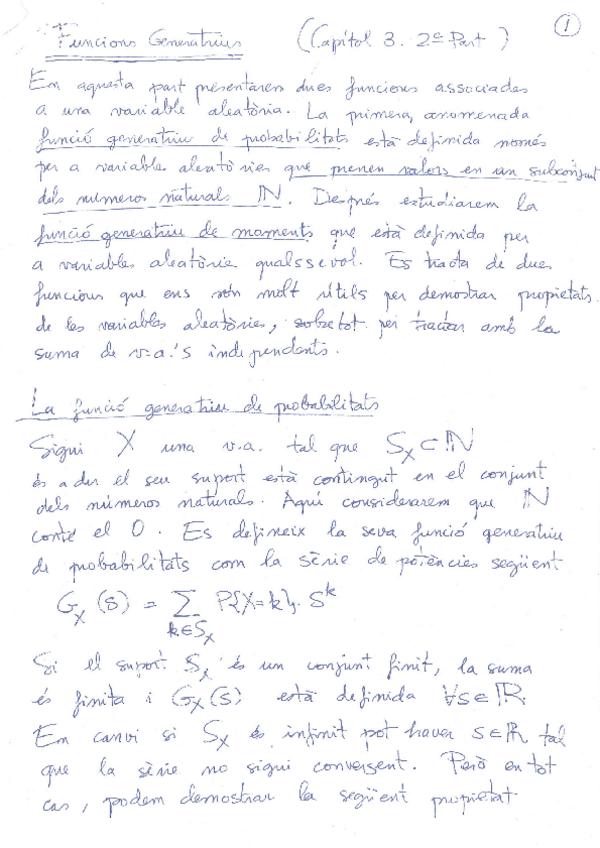 Funcions Generatrius (Capítol 3. 2ª Part) 1
En aquesta part presentarem dues funcions associades
a una variable aleatòria. La primera, anomenada
funció generatriu de probabilitats està definida només
per a variables aleatòries que prenen valors en un subconjunt
dels números naturals ℕ. Després estudiarem la
funció generatriu de moments que està definida per
a variables aleatòries qualssevol. Es tracta de dues
funcions que ens són molt útils per demostrar propietats
de les variables aleatòries, sobretot per tractar amb la
suma de v.a.'s independents.
La funció generatriu de probabilitats
Sigui X una v.a. tal que S_X ⊂ ℕ
és a dir el seu suport està contingut en el conjunt
dels números naturals. Aquí considerarem que ℕ
conté el 0. Es defineix la seva funció generatriu
de probabilitats com la sèrie de potències següent
G_X(s) = ∑_{k∈S_X} P{X=k}·s^k
Si el suport S_X és un conjunt finit, la suma
és finita i G_X(s) està definida ∀s∈ℝ
En canvi si S_X és infinit pot haver s∈ℝ tal
que la sèrie no sigui convergent. Però en tot
cas, podem demostrar la següent propietat